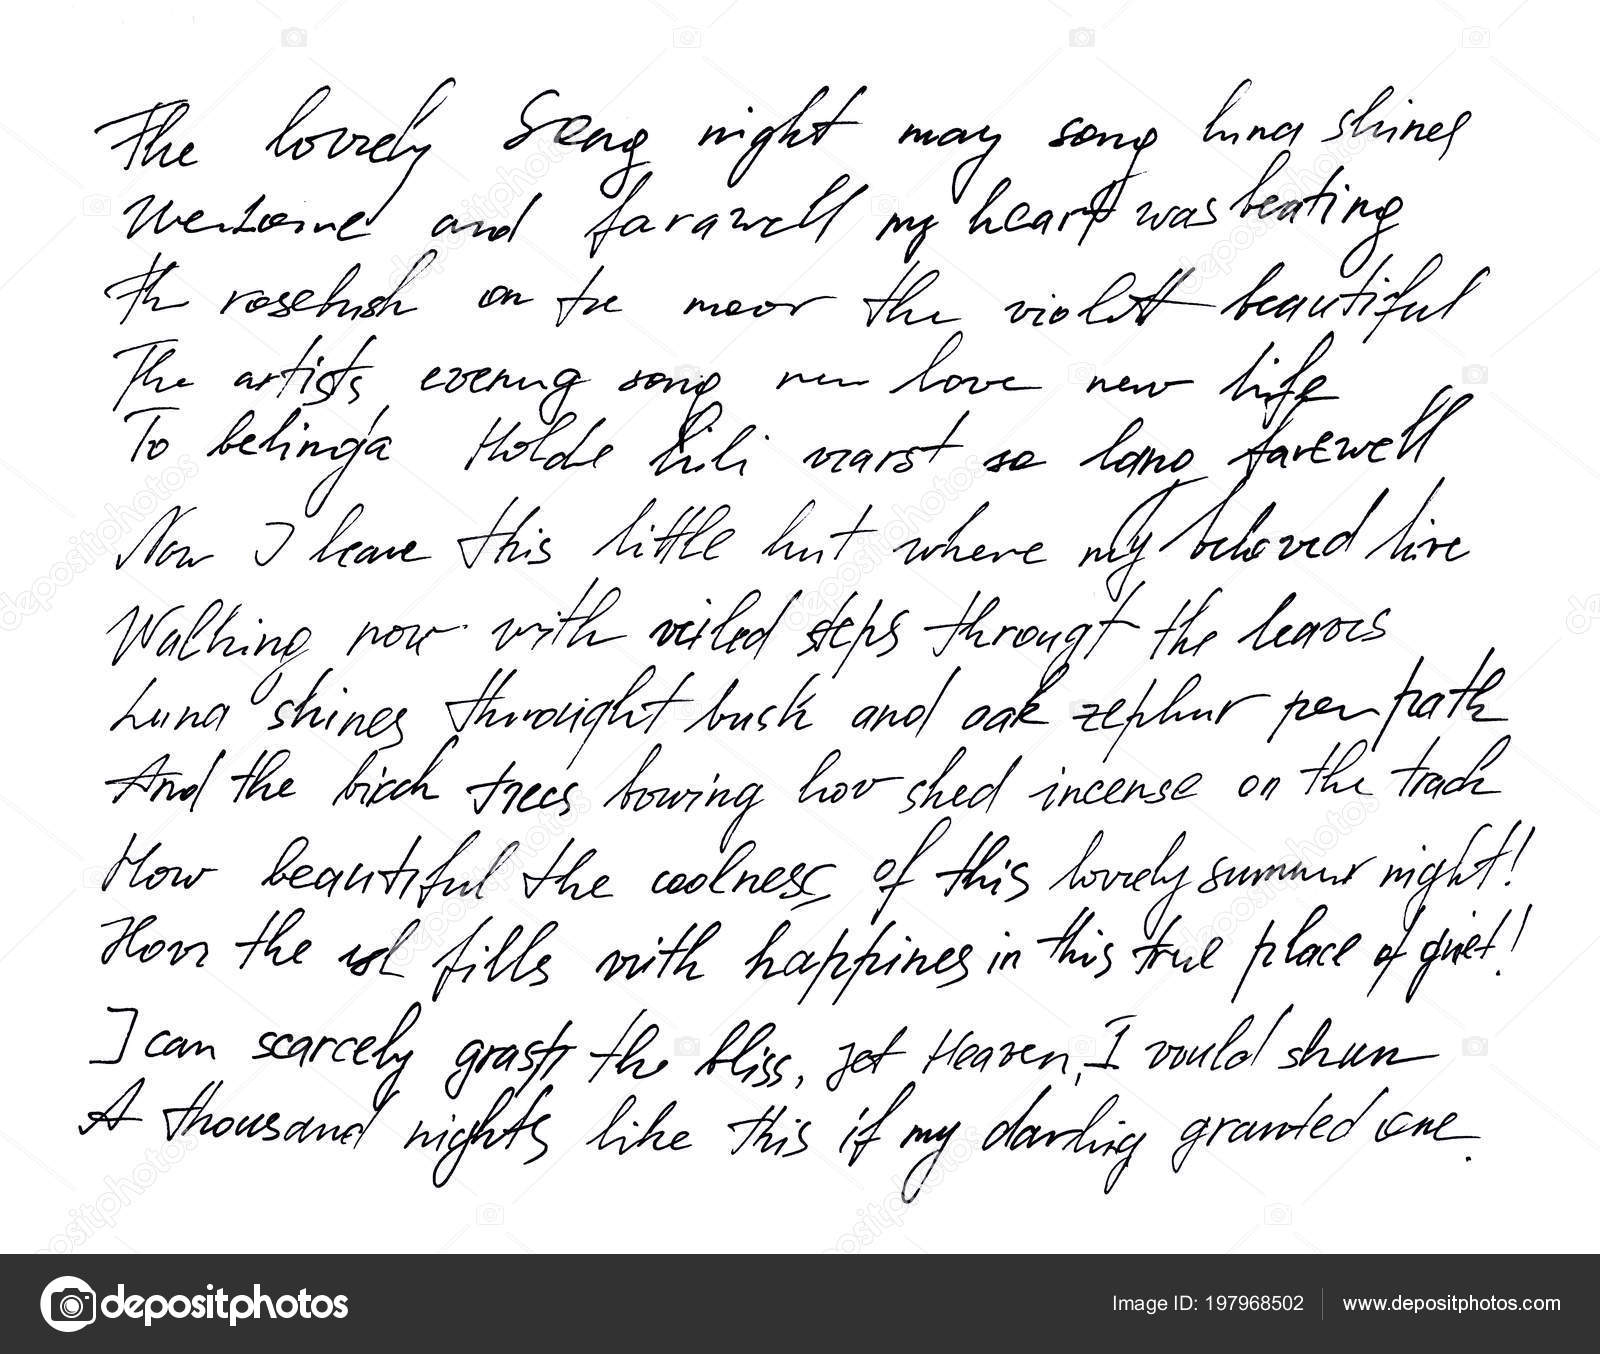 The lovely Song night may song luna shines
Welcome and farawell my heart was beating
Th rosebush on the moor the violett beautiful
The artists evening song new love new life
To belinda Holde Lili warst so lang farewell
Now I leave this little hut where my beloved live
Walking now with veiled steps througt the leaves
Luna shines throught busk and oak zephur per path
And the birch trees bowing how shed incense on the track
How beautiful the coolness of this lovely summer night!
How the fills with happines in this true place of quiet!
I can scarcely grasp the bliss, jet Heaven, I would shun
A thousand nights like this if my darling granted one.
depositphotos
Image ID: 197968502 www.depositphotos.com